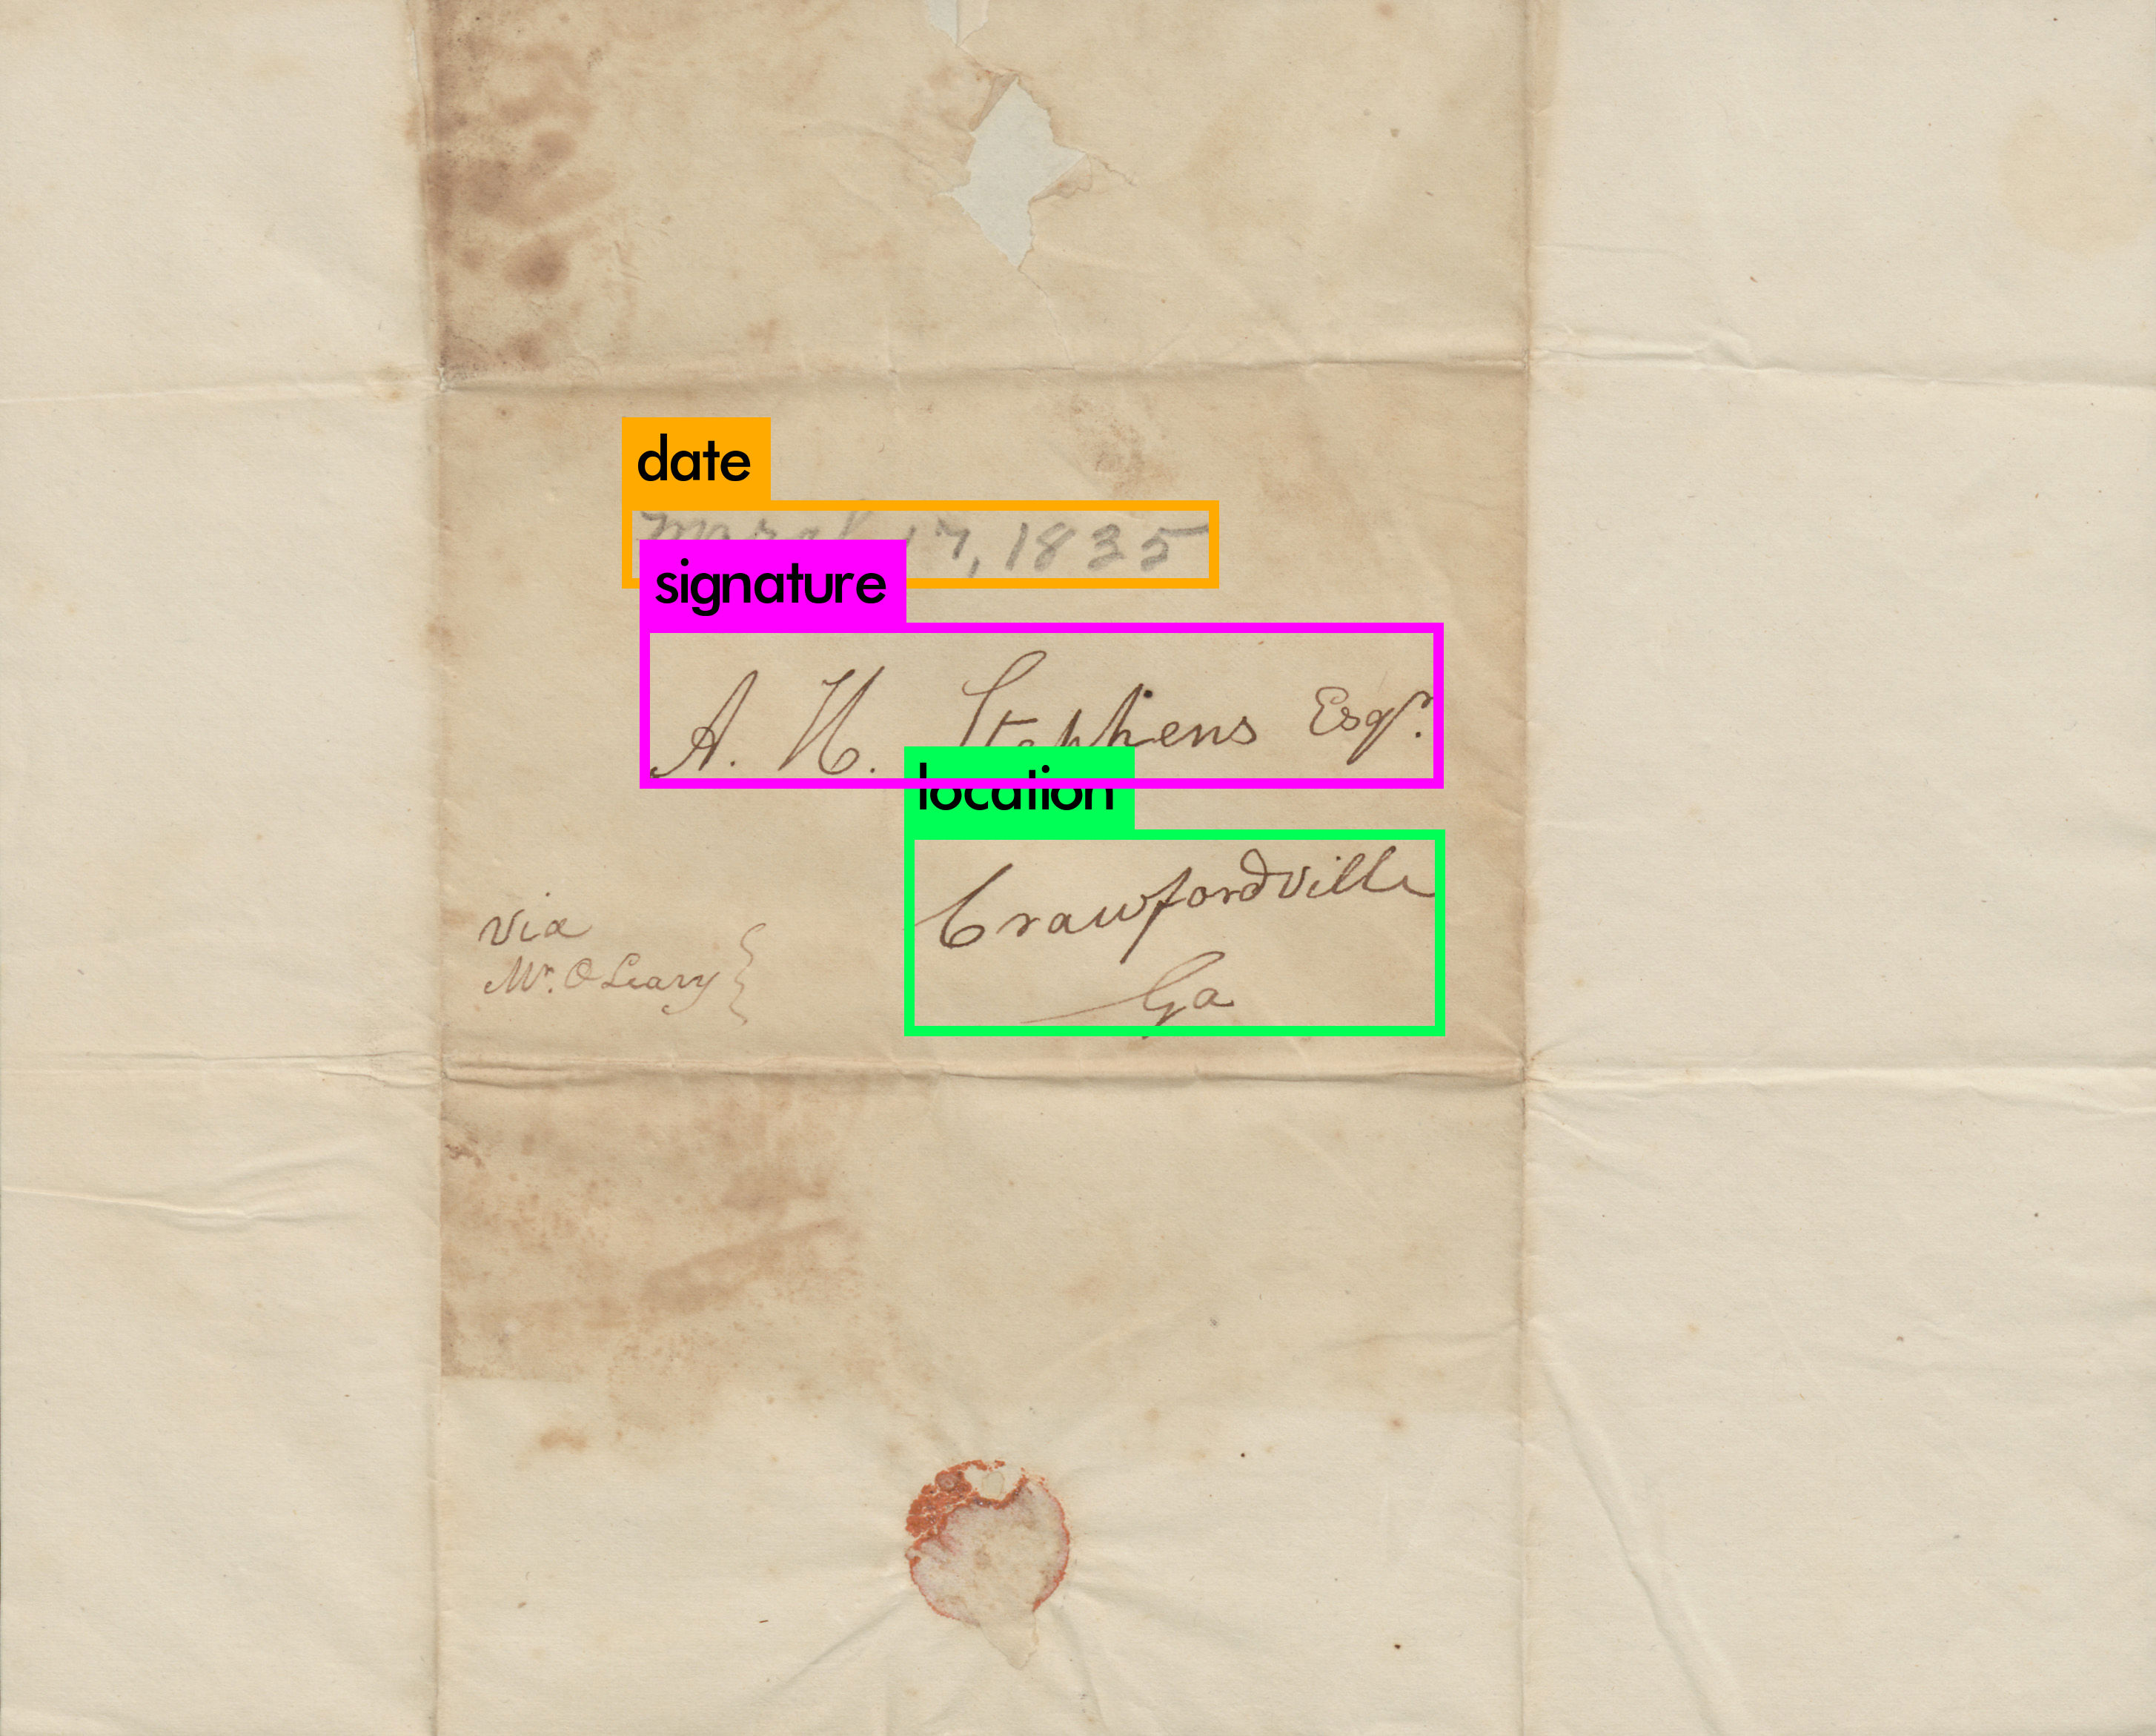 date
17, 1835
signature
A. H. Stephens Esqr.
location
Crawfordville
Ga
via
Mr. O Leary